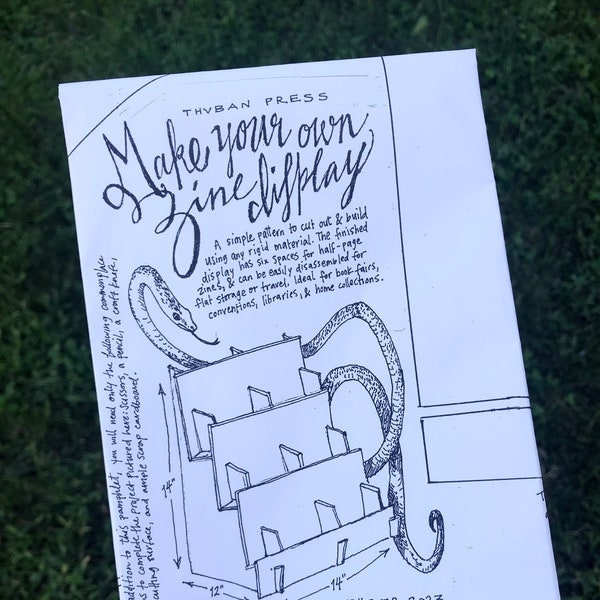 THVBAN PRESS
Make your own
zine display
A simple pattern to cut out & build
using any rigid material. The finished
display has six spaces for half-page
zines, & can be easily disassembled for
flat storage or travel. Ideal for book fairs,
conventions, libraries, & home collections.
addition to this pamphlet, you will need only the following commonplace
to complete the project pictured here: scissors, a pencil, a craft knife,
cutting surface, and ample scrap cardboard.
14"
12"
14"
2023